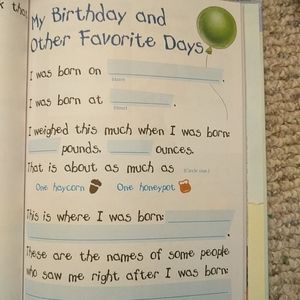 My Birthday and
Other Favorite Days
I was born on
I was born at
I weighed this much when I was born:
pounds. ounces.
That is about as much as (Circle one.)
One haycorn One honeypot
This is where I was born:
These are the names of some people
who saw me right after I was born: